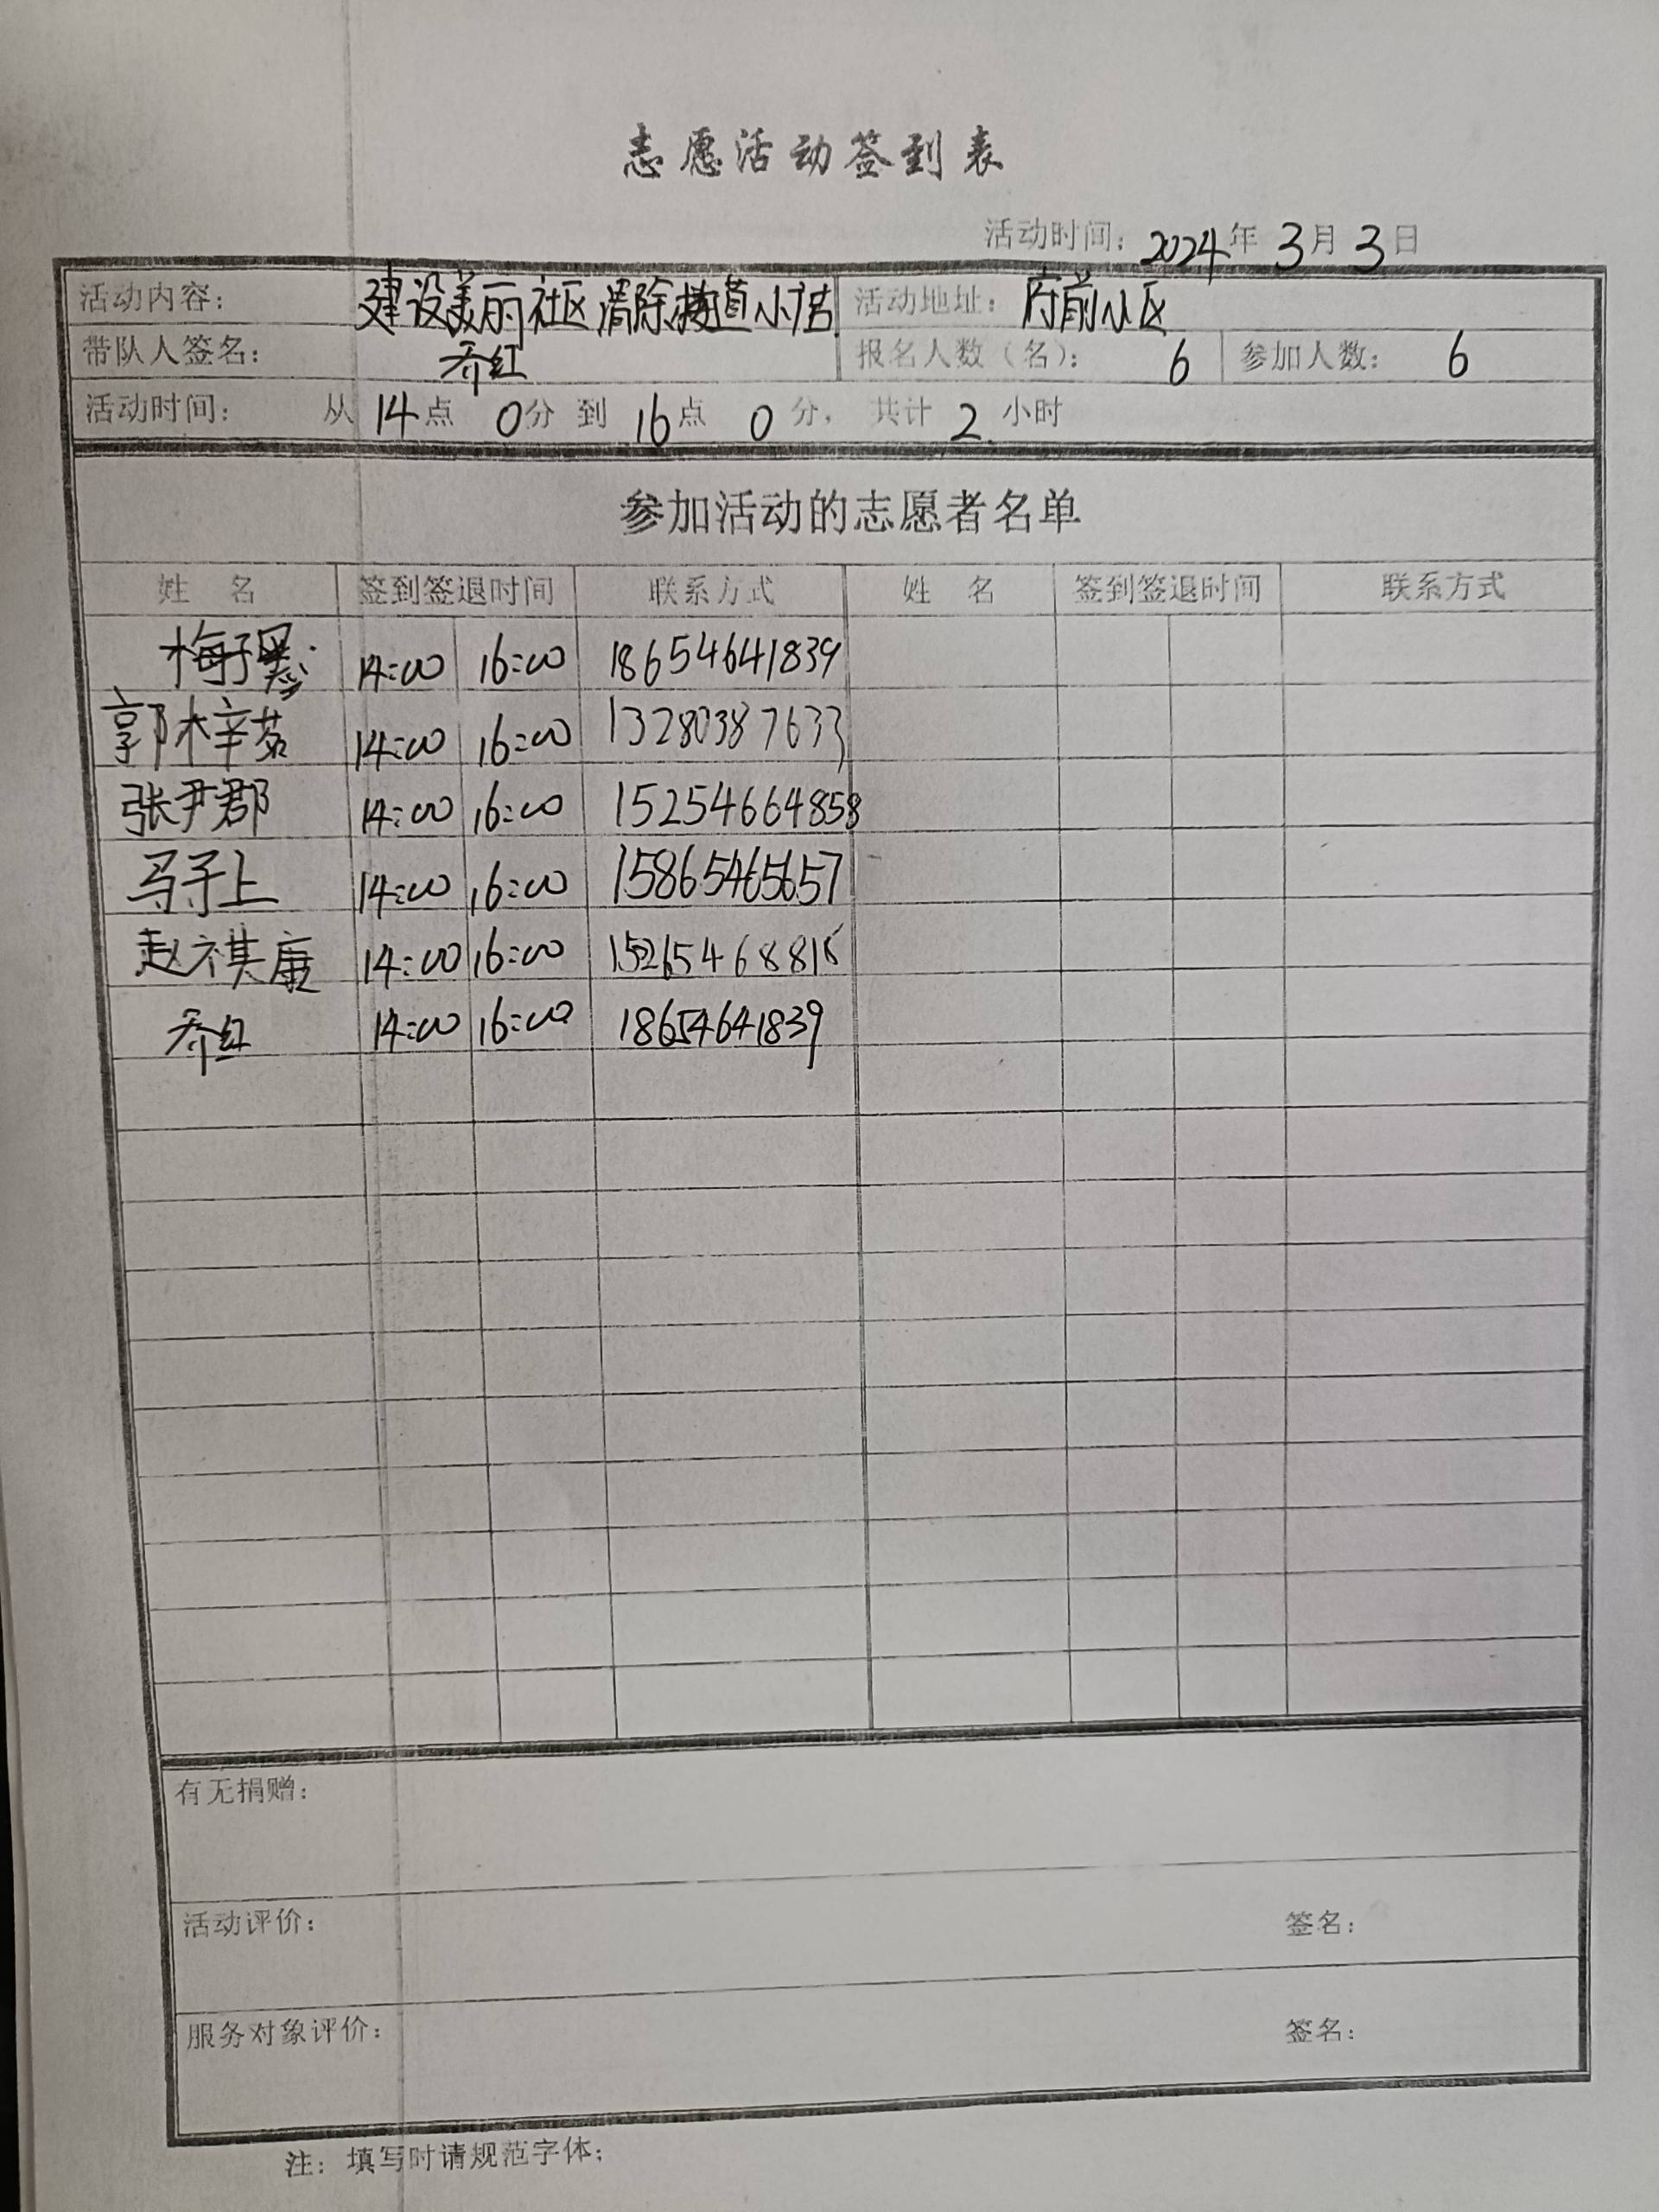 志愿活动签到表
活动时间：2024年3月3日
活动内容：建设美丽社区清除楼道小广告 活动地址：府前小区
带队人签名：乔红 报名人数（名）：6 参加人数：6
活动时间：从14点0分到16点0分，共计2小时
参加活动的志愿者名单
姓 名 签到签退时间 联系方式 姓 名 签到签退时间 联系方式
梅子 14:00 16:00 18654641839
郭梓茹 14:00 16:00 13280387633
张尹郡 14:00 16:00 15254664858
马子上 14:00 16:00 15865465657
赵祺康 14:00 16:00
乔红 14:00 16:00 18654641839
有无捐赠：
活动评价： 签名：
服务对象评价： 签名：
注：填写时请规范字体；